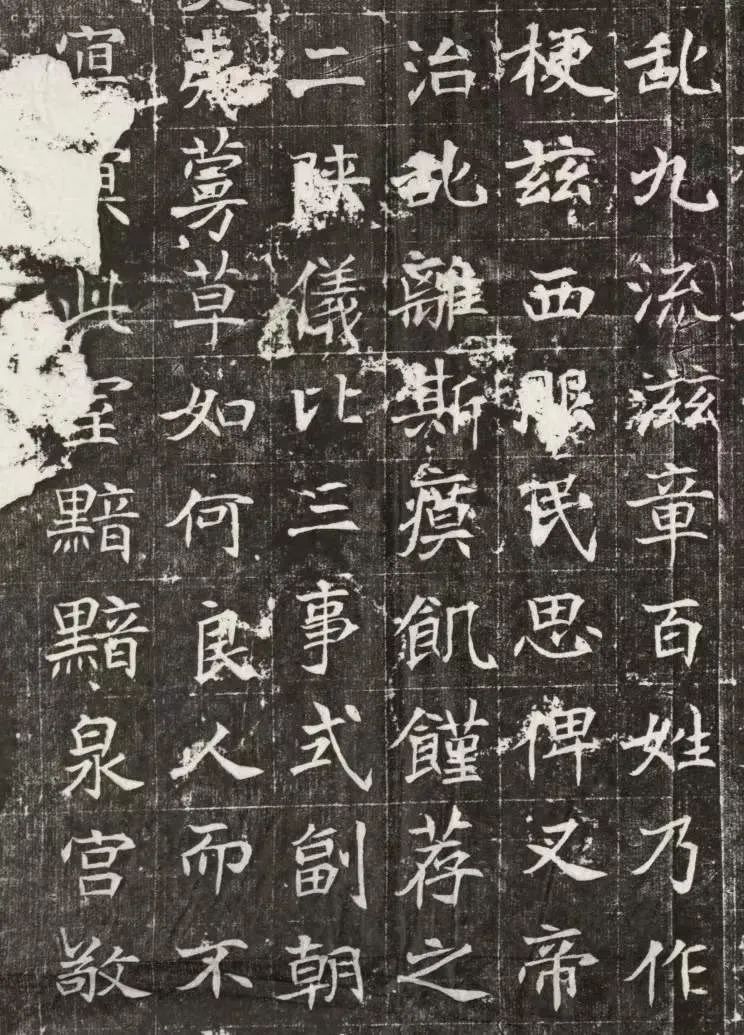 乱九流滋章百姓乃作
梗兹西服民思俾乂帝
治乱離斯瘼飢饉荐之
二陕儀比三事式副朝
夷蒡草如何良人而不
冥此室黯黯泉宫敬